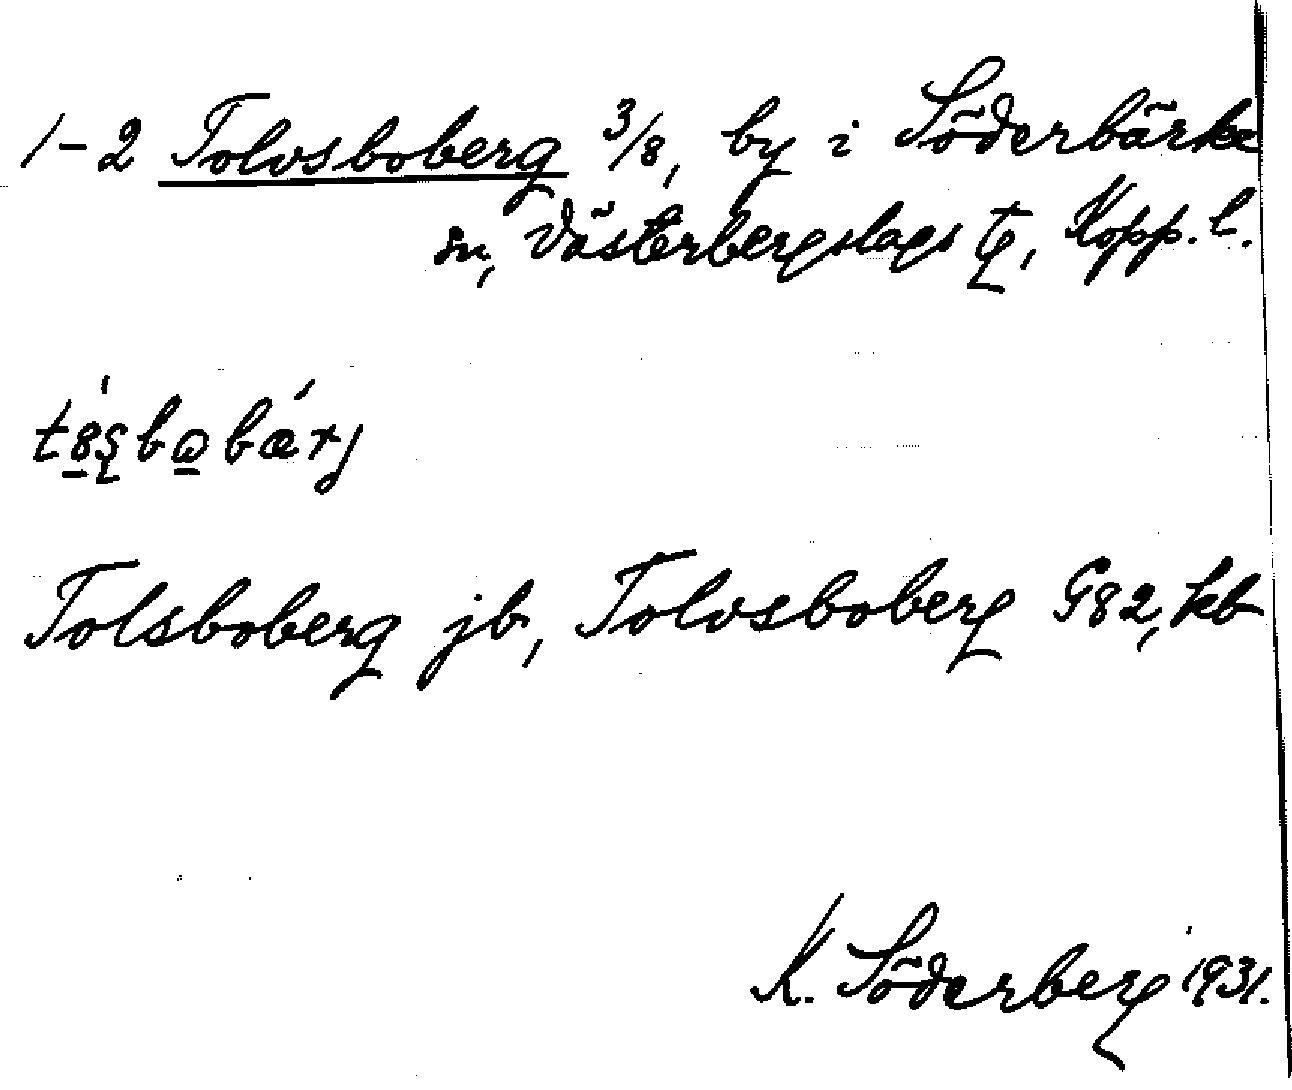 1-2 Tolvsboberg 3/8, by i Söderbärke
sn, Västerbergslags tg, Kopp. l.
Tolsboberg jb, Tolvsboberg G82, kb
K. Söderberg 1931.